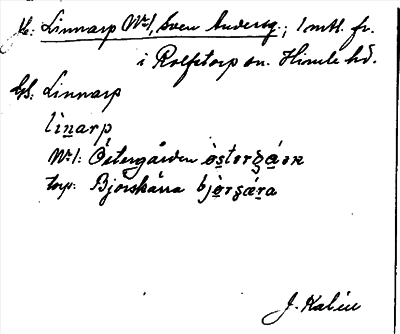 Jb: Linnarp Nr 1, Sven Anderss., 1 mtl. fr.
i Rolfstorp sn. Himle hd.
Gd: Linnarp
linarp
Nr 1: Östergården
torp: Björskärra björsǽra
J. Kalén